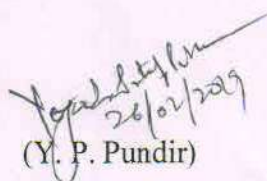 26/02/2019
(Y. P. Pundir)